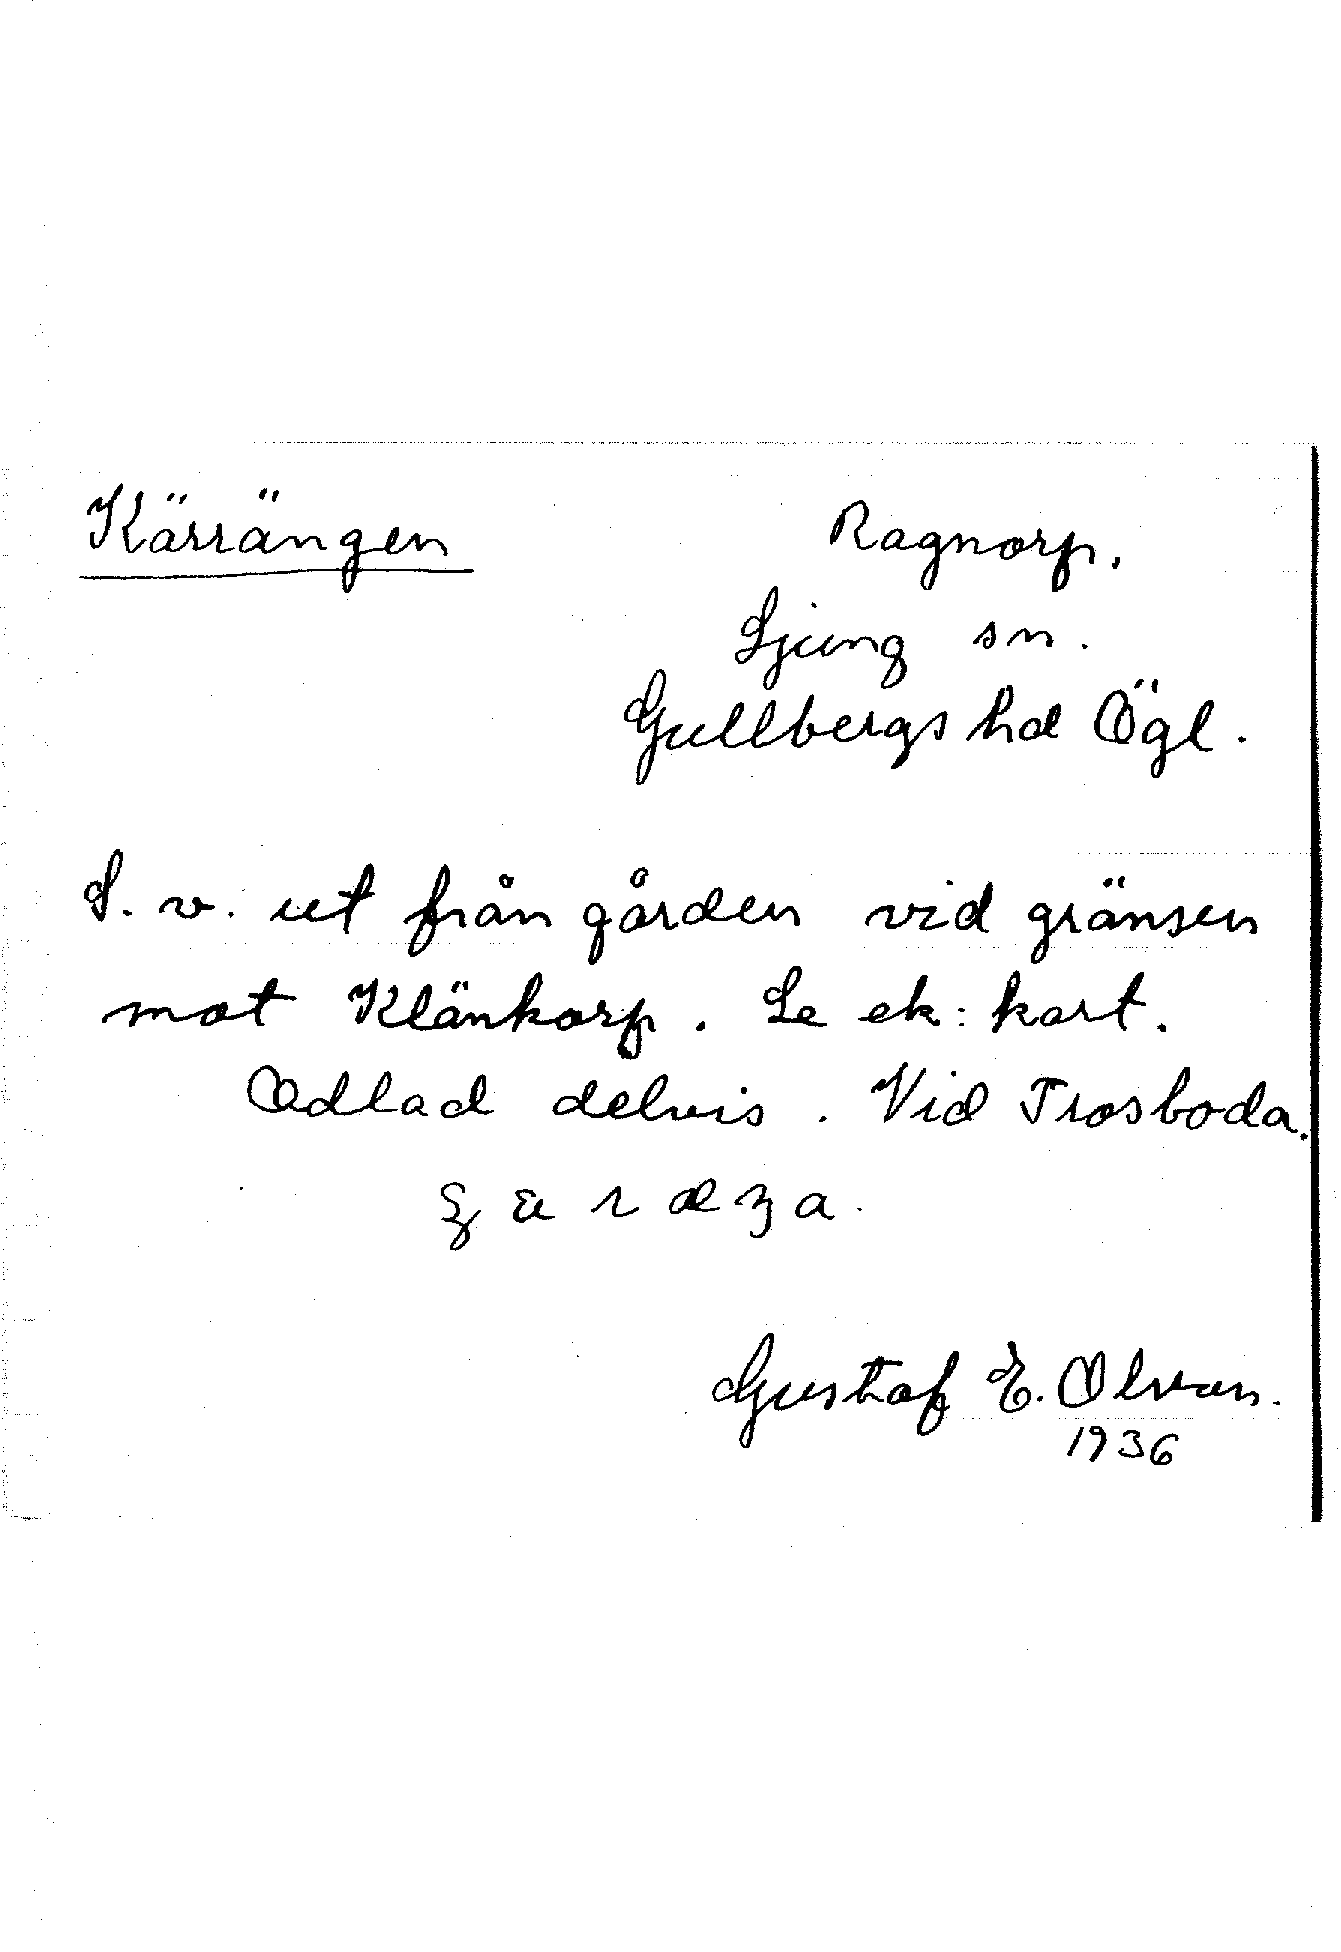 Kärrängen
Ragnorp.
Ljung sn.
Gullbergs hd Ögl.
S. v. ut från gården vid gränsen
mot Klänkorp. Se ek: kart.
Odlad delvis. Vid Trosboda.
Gustaf E. Olvan.
1936